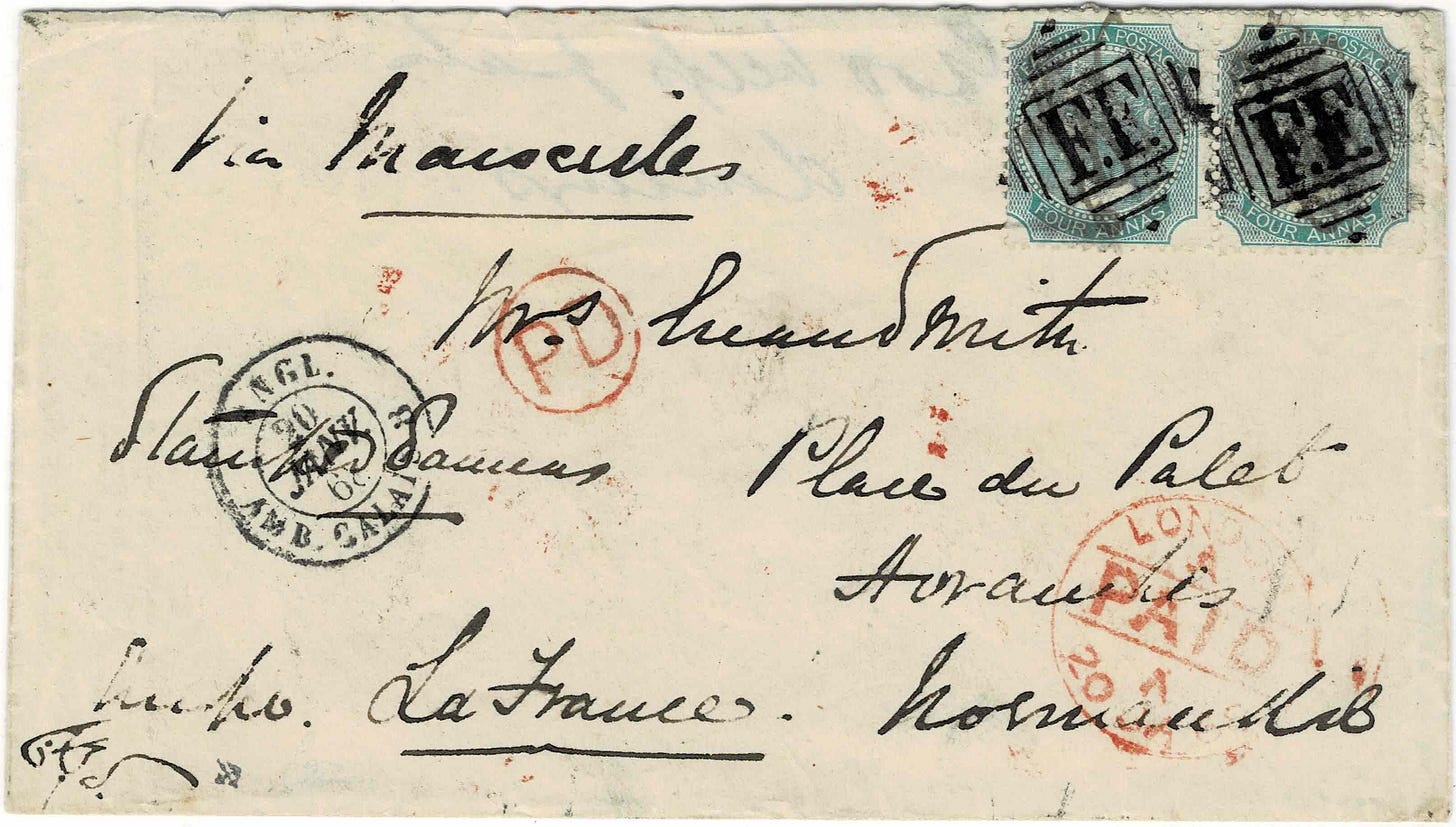 INDIA POSTAGE INDIA POSTAGE
F.F. F.F.
FOUR ANNAS FOUR ANNAS
Via Marseilles
Mrs
PD
ANGL.
20
JANV
68
AMB. CALAIS B
Stamped
Place du Palet
Avranches
LONDON
PAID
20 JA
La France. Normandie